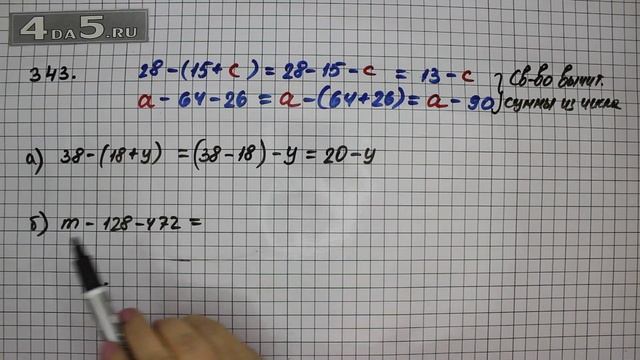 4DA5.RU
343. 28-(15+c)=28-15-c = 13-c } Св-во вычит.
a-64-26 = a-(64+26)= a-90 } суммы из числа
а) 38-(18+y) =(38-18)-y=20-y
б) m-128-472=